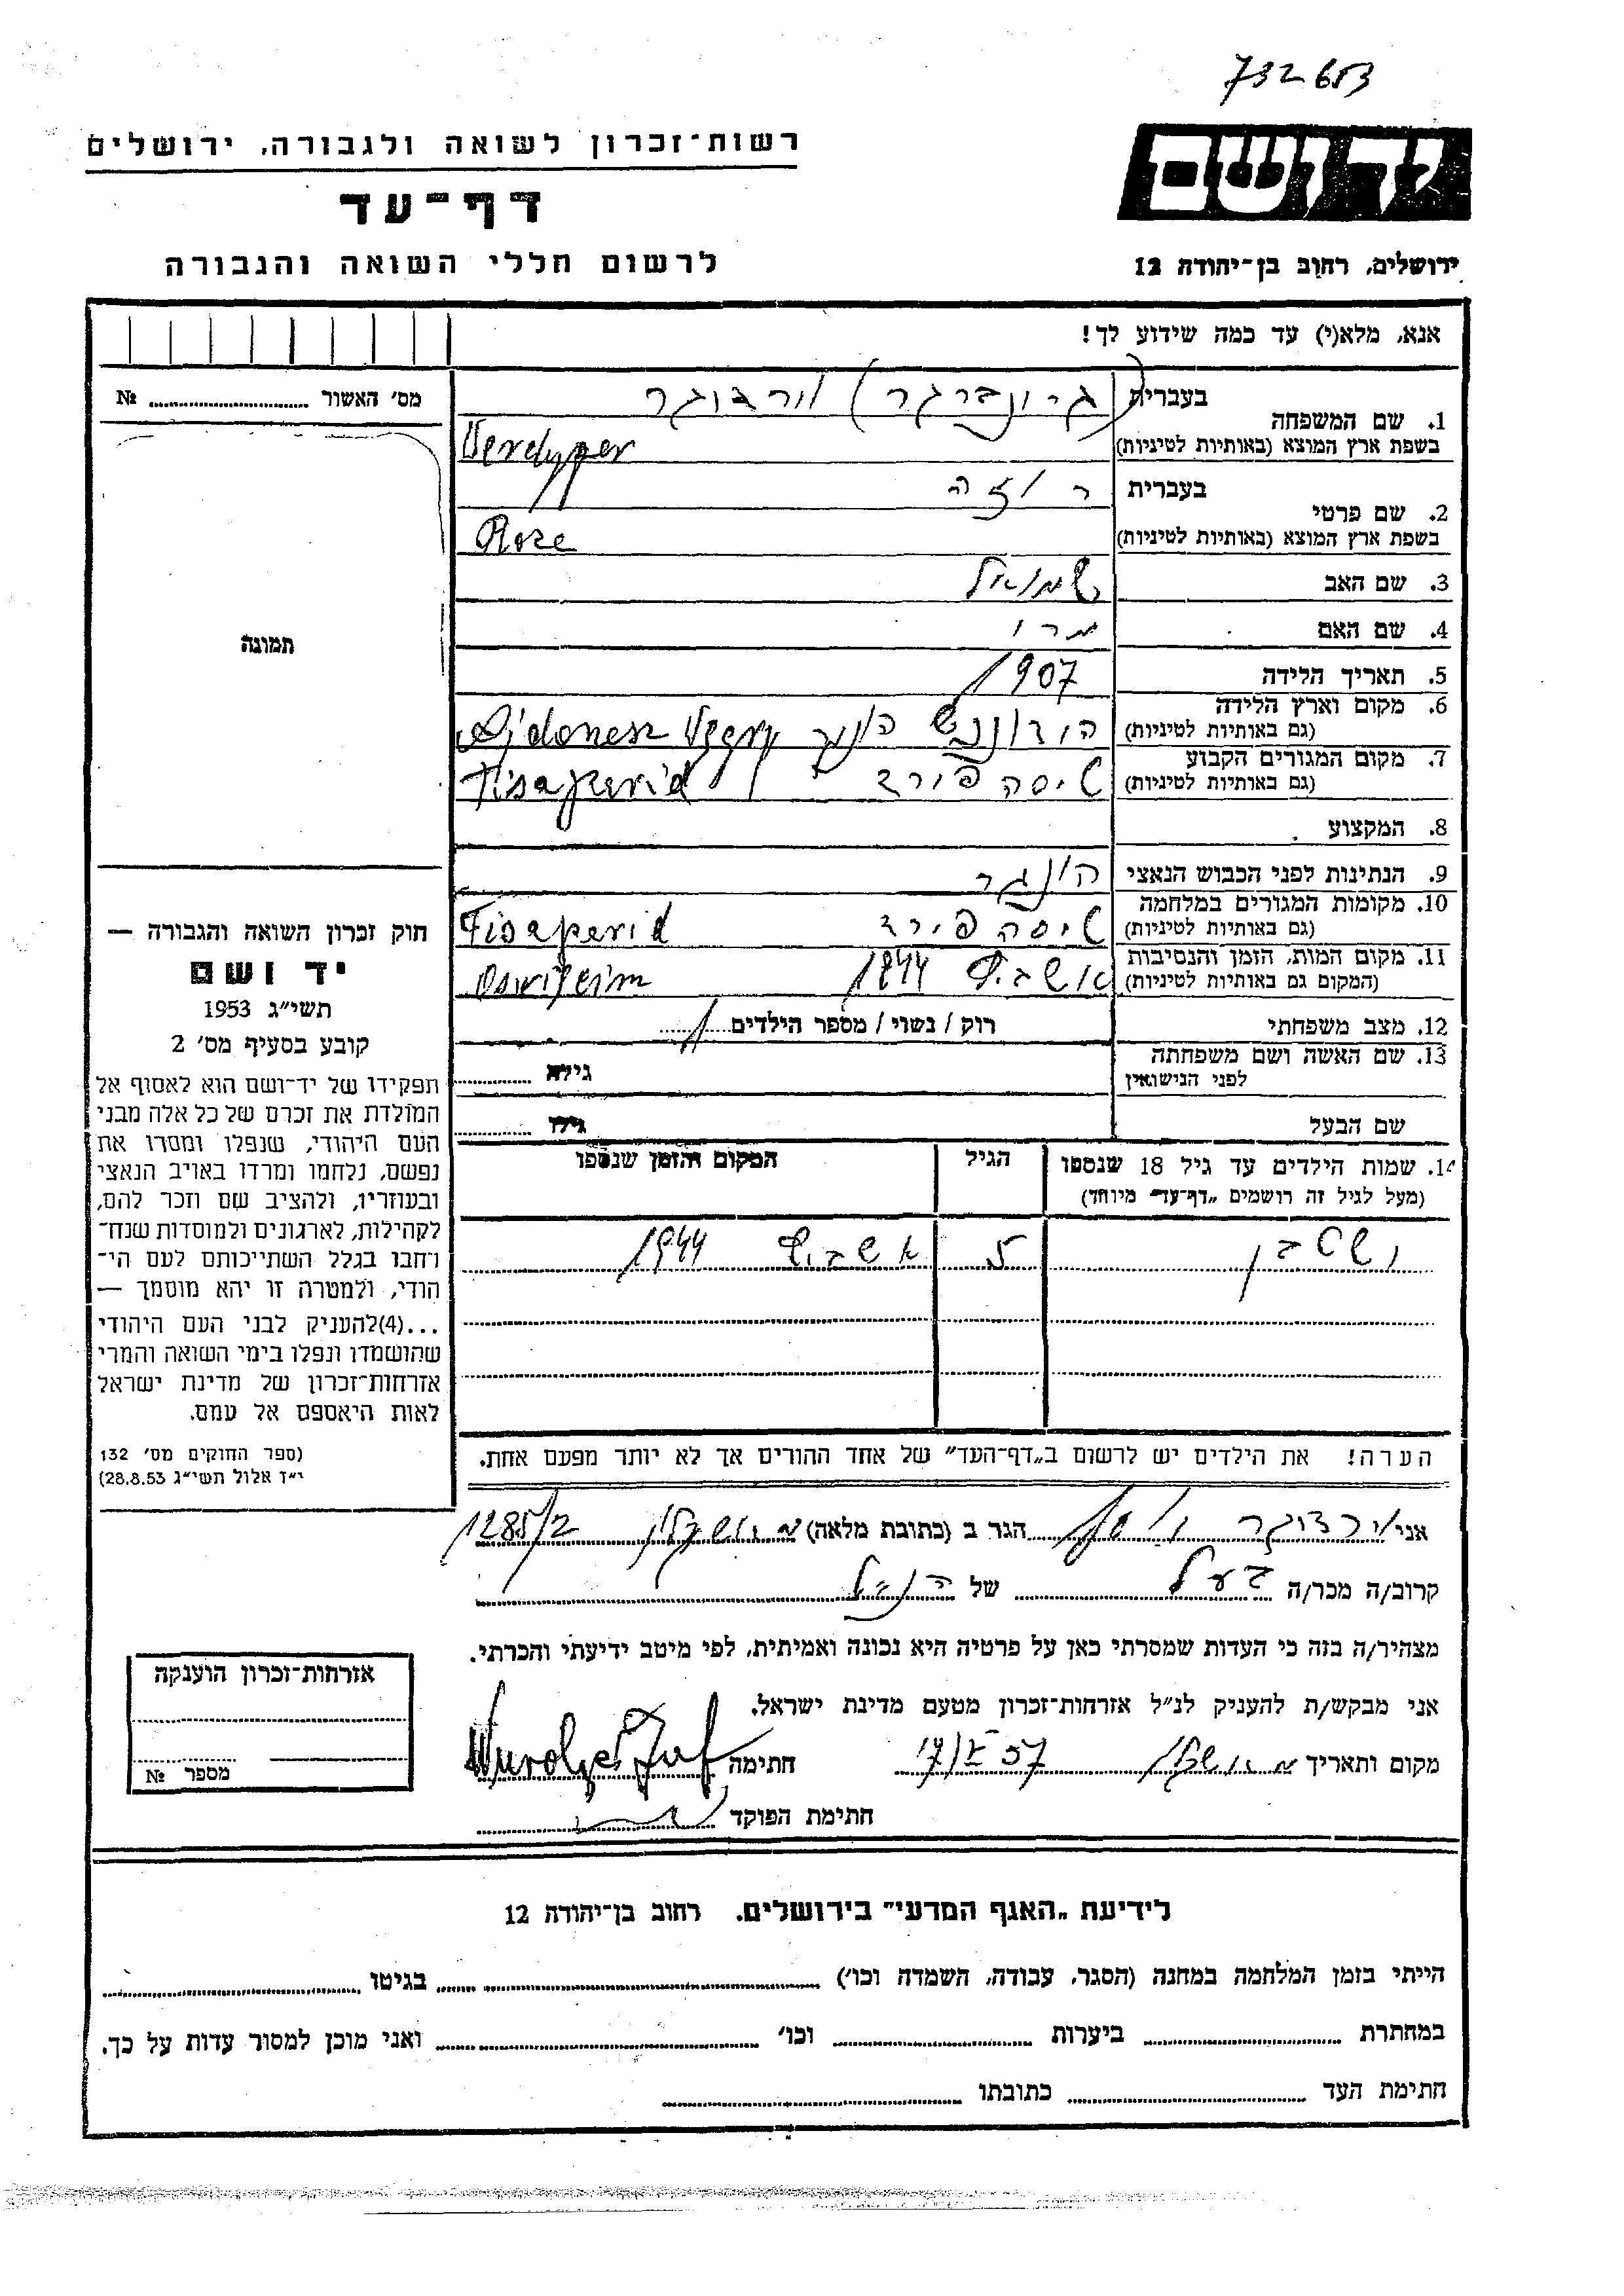 732653
רשות־זכרון לשואה ולגבורה, ירושלים
יד ושם
דף־עד
לרשום חללי השואה והגבורה
ירושלים, רחוב בן־יהודה 12
אנא, מלא(י) עד כמה שידוע לך!
מס׳ האשור № 
1. שם המשפחה
בעברית (גרונברגר)
בשפת ארץ המוצא (באותיות לטיניות)
2. שם פרטי
בעברית רוזה
בשפת ארץ המוצא (באותיות לטיניות) Roze
3. שם האב שמואל
4. שם האם
5. תאריך הלידה 1907
6. מקום וארץ הלידה
(גם באותיות לטיניות)
7. מקום המגורים הקבוע
(גם באותיות לטיניות) טיסהפירד
8. המקצוע
9. הנתינות לפני הכבוש הנאצי הונגר
10. מקומות המגורים במלחמה
(גם באותיות לטיניות) טיסהפירד
11. מקום המות, הזמן והנסיבות
(המקום גם באותיות לטיניות) 1944
12. מצב משפחתי רוק / נשוי / מספר הילדים 1
13. שם האשה ושם משפחתה
לפני הנישואין
גילה
שם הבעל
גילו
14. שמות הילדים עד גיל 18 שנספו
(מעל לגיל זה רושמים „דף־עד״ מיוחד)
הגיל
המקום והזמן שנספו
5
1944
הערה! את הילדים יש לרשום ב„דף־העד״ של אחד ההורים אך לא יותר מפעם אחת.
תמונה
חוק זכרון השואה והגבורה —
יד ושם
תשי״ג 1953
קובע בסעיף מס׳ 2
תפקידו של יד־ושם הוא לאסוף אל
המולדת את זכרם של כל אלה מבני
העם היהודי, שנפלו ומסרו את
נפשם, נלחמו ומרדו באויב הנאצי
ובעוזריו, ולהציב שם וזכר להם,
לקהילות, לארגונים ולמוסדות שנח־
רחבו בגלל השתייכותם לעם הי־
הודי, ולמטרה זו יהא מוסמך —
...(4)להעניק לבני העם היהודי
שהושמדו ונפלו בימי השואה והמרי
אזרחות־זכרון של מדינת ישראל
לאות היאספם אל עמם.
(ספר החוקים מס׳ 132
י״ז אלול תשי״ג 28.8.53)
אני הגר ב (כתובת מלאה) 1285/2
קרוב/ה מכר/ה בעל של הנ״ל
מצהיר/ה בזה כי העדות שמסרתי כאן על פרטיה היא נכונה ואמיתית, לפי מיטב ידיעתי והכרתי.
אני מבקש/ת להעניק לנ״ל אזרחות־זכרון מטעם מדינת ישראל.
מקום ותאריך חתימה
חתימת הפוקד
אזרחות־זכרון הוענקה
מספר №
לידיעת „האגף המדעי״ בירושלים, רחוב בן־יהודה 12
הייתי בזמן המלחמה במחנה (הסגר, עבודה, השמדה וכו׳) בגיטו
במחתרת ביערות וכו׳ ואני מוכן למסור עדות על כך.
חתימת העד כתובתו